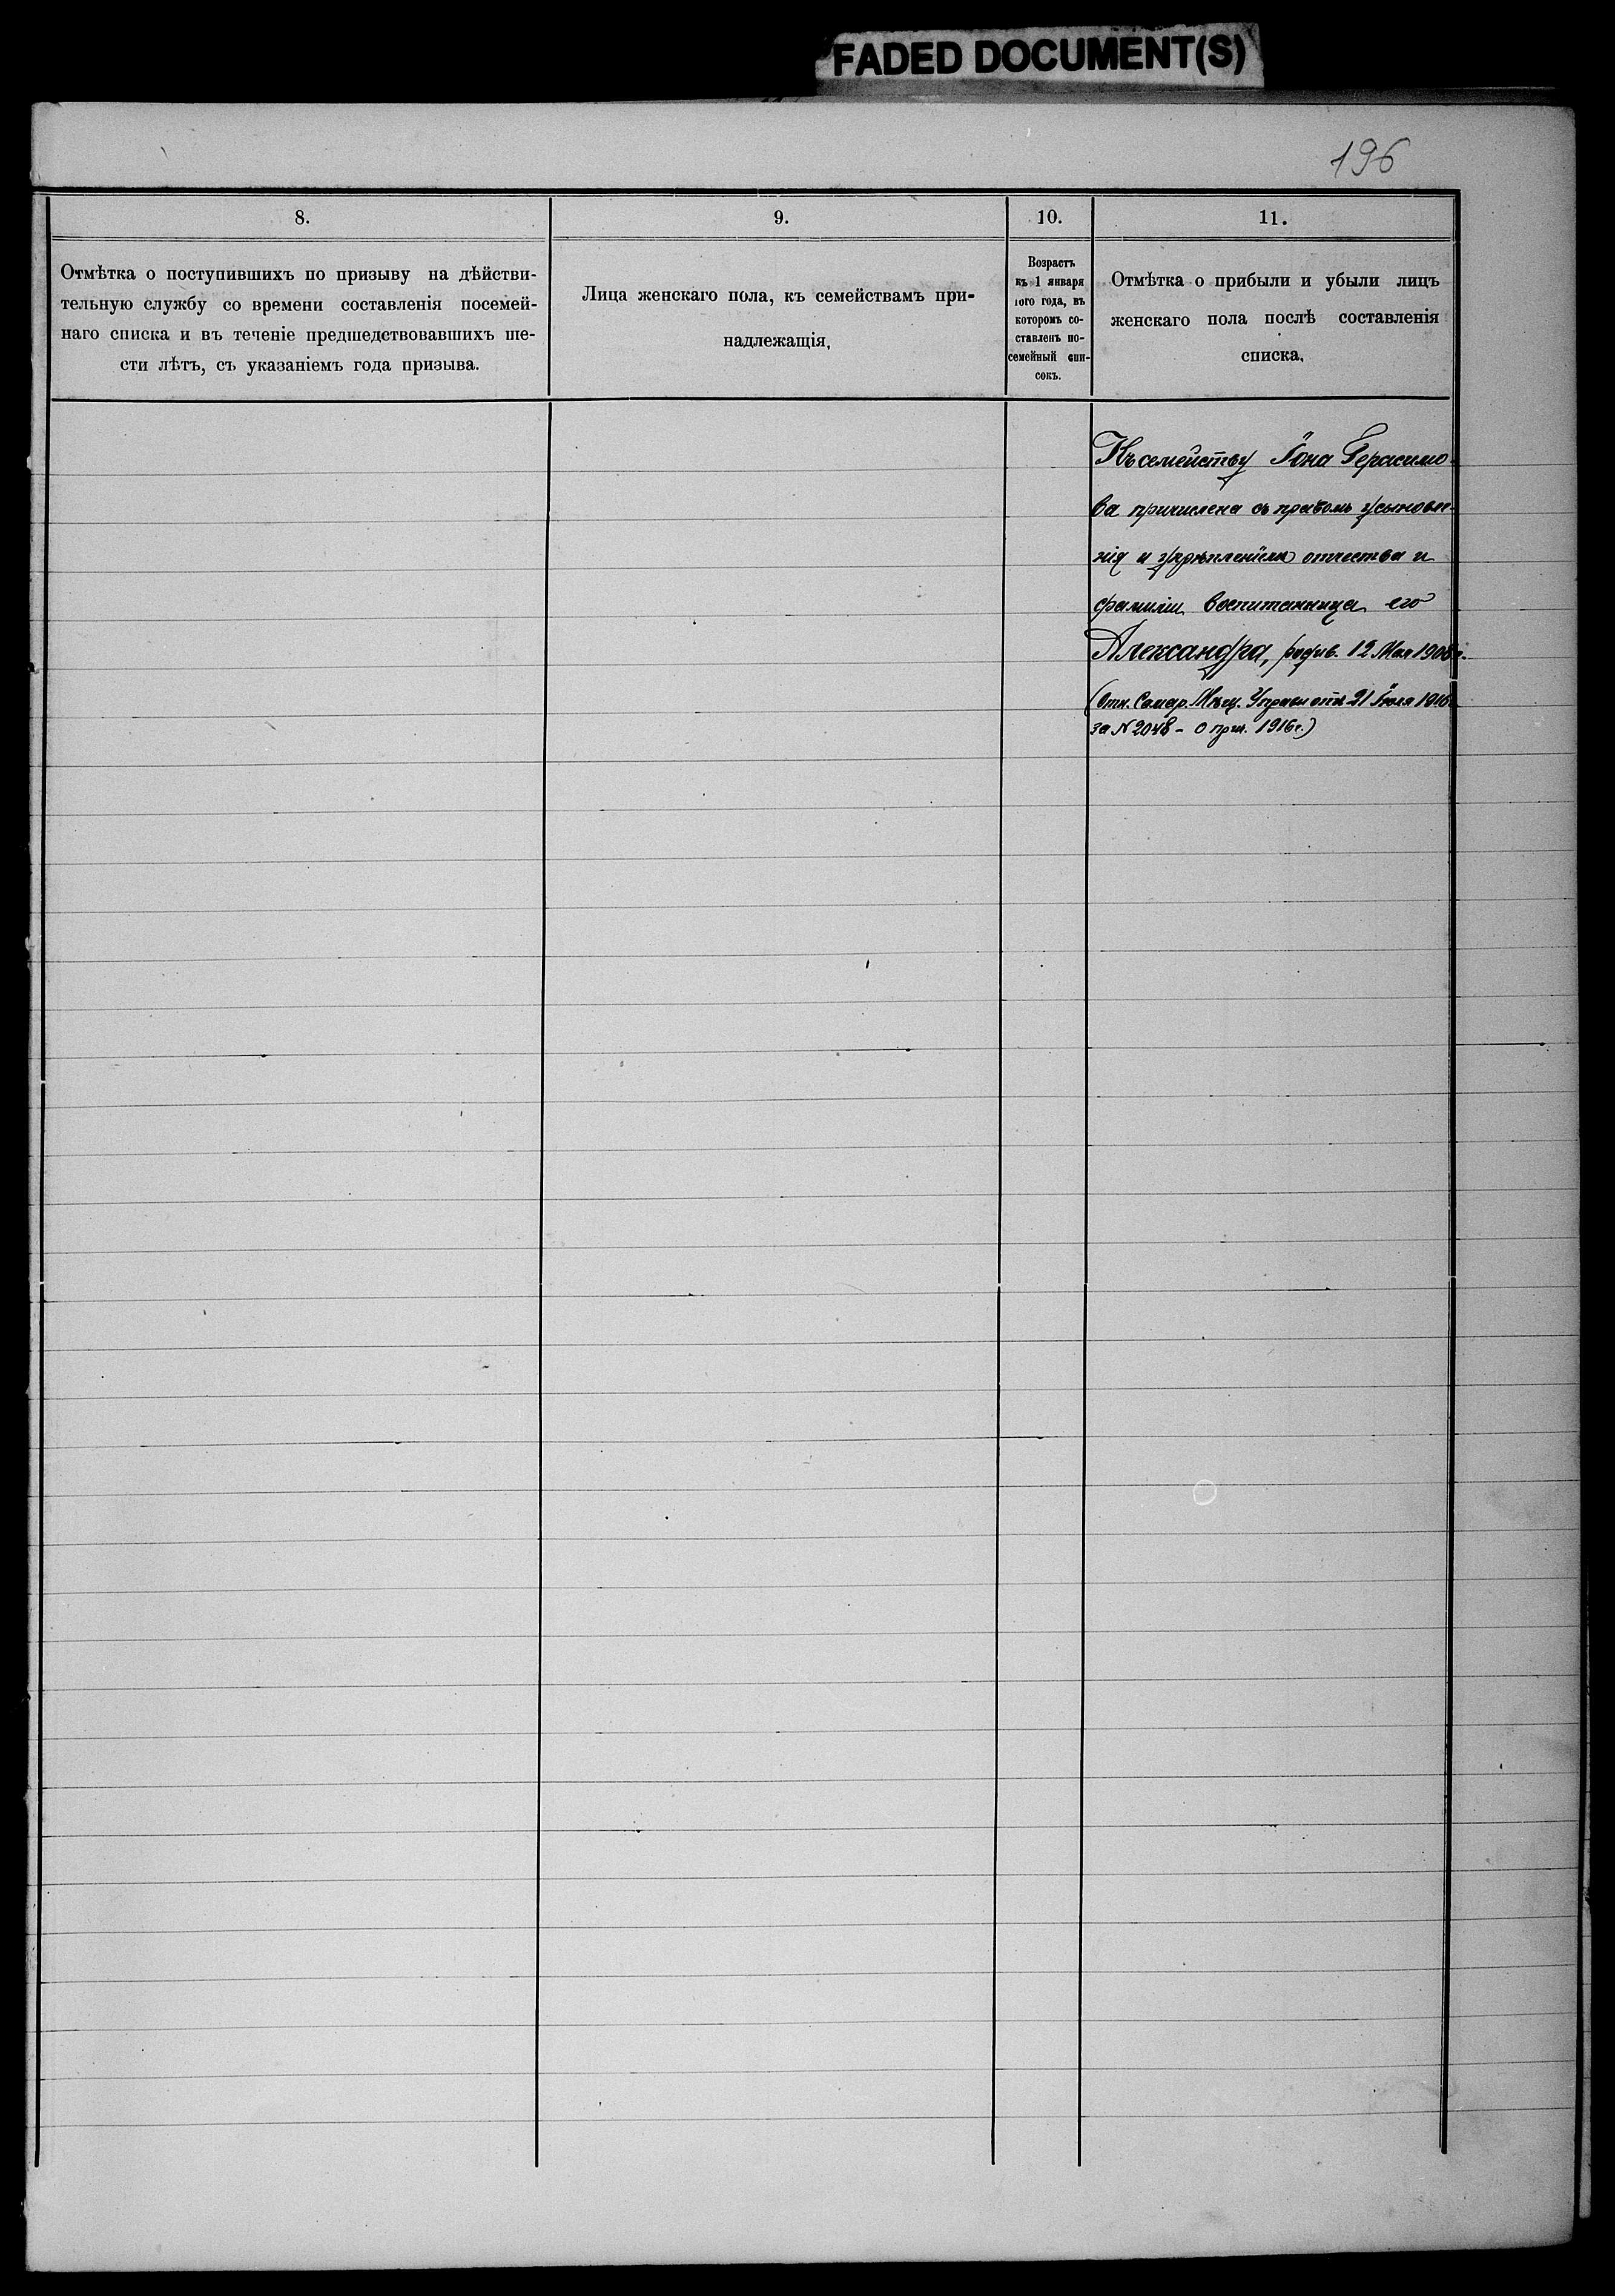 FADED DOCUMENT(S)
196
8.
Отмѣтка о поступившихъ по призыву на дѣйстви-
тельную службу со времени составленія посемей-
наго списка и въ теченіе предшедствовавшихъ ше-
сти лѣтъ, съ указаніемъ года призыва.
9.
Лица женскаго пола, къ семействамъ при-
надлежащія,
10.
Возрастъ
къ 1 января
того года, въ
которомъ со-
ставленъ по-
семейный спи-
сокъ.
11.
Отмѣтка о прибыли и убыли лицъ
женскаго пола послѣ составленія
списка,
Къ семейству Іона Герасимо-
ва причислена съ правомъ усыновле-
нія и укрѣпленіемъ отчества и
фамиліи воспитанница его
Александра, родив. 12 Мая 1908 г.
(Отн. Самар. Мѣщ. Управы отъ 21 Іюля 1916
за № 2048 - О прич. 1916 г.)